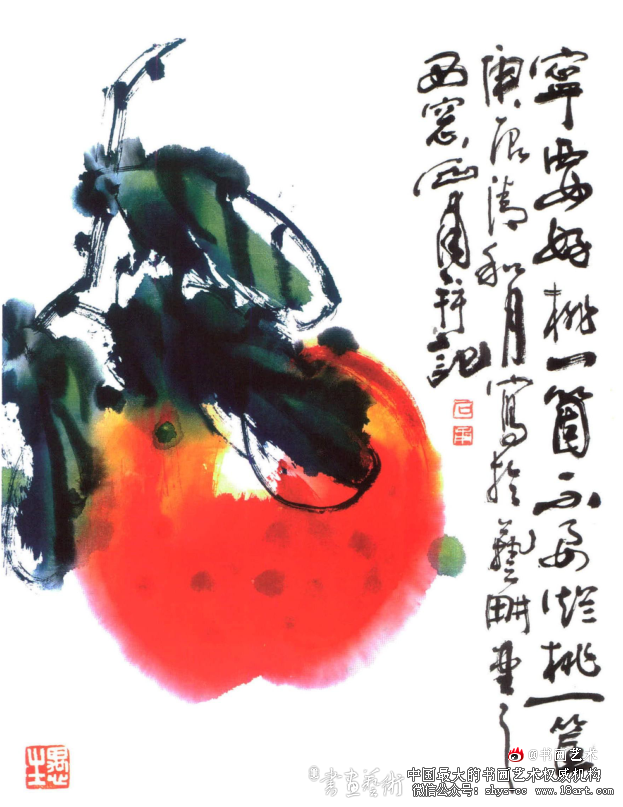 寧要好桃一箇不要爛桃一筐
庚辰清和月寫於藝畊堂之
西窓
并記
@书画艺术
©書畫藝術
中国最大的书画艺术权威机构
微信公众号: shys-cc www.18art.com